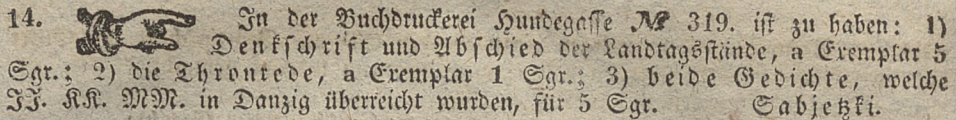 14. In der Buchdruckerei Hundegasse № 319. ist zu haben: 1)
Denkschrift und Abschied der Landtagsstände, a Exemplar 5
Sgr.; 2) die Thronrede, a Exemplar 1 Sgr.; 3) beide Gedichte, welche
JJ. KK. MM. in Danzig überreicht wurden, für 5 Sgr. Sabjetzki.